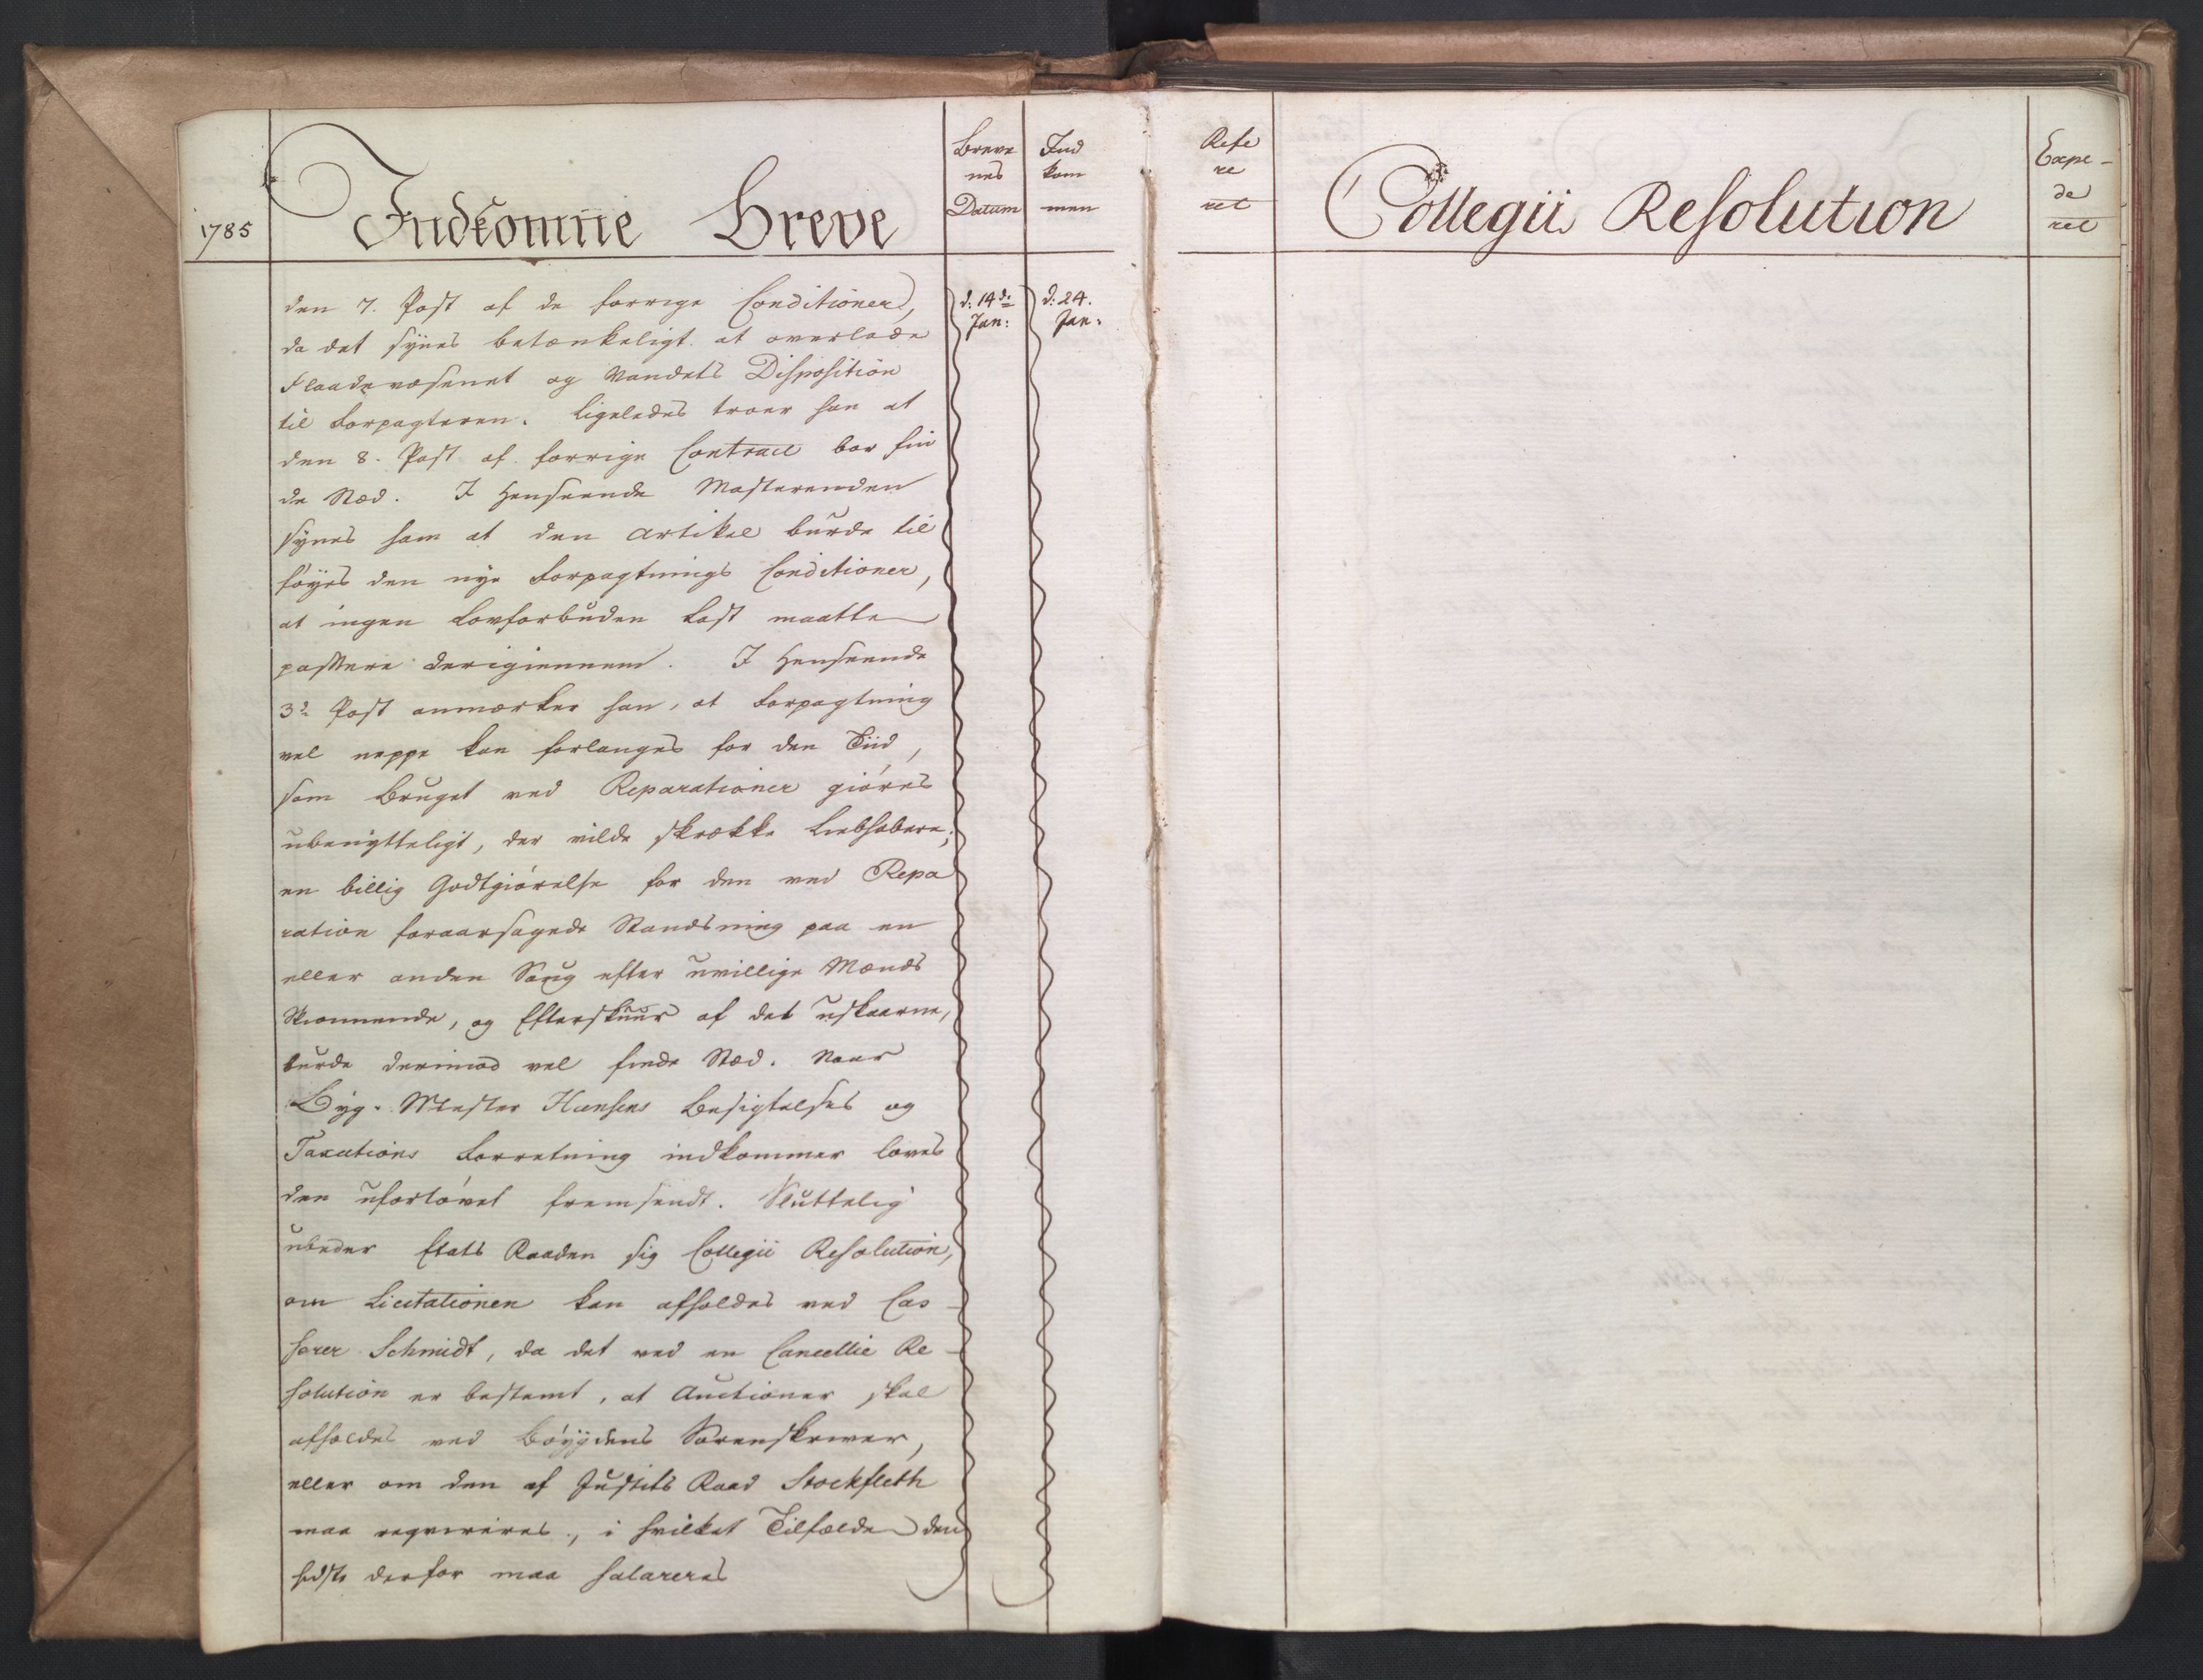 1785
Indkomne Breve
Breve
nes
Datum
Ind
kom
men
Refe
re
ret
Collegii Resolution
Expe-
de
ret
d: 14de
Jan:
d: 24.
Jan:
den 7. Post af de forrige Conditioner,
da det synes betænkeligt at overlade
Flaadevæsenet og Vandets Disposition
til Forpagteren. Ligeledes troer han at
den 8. Post af forrige Contract bør fin
de Stæd. I Henseende Masterenden
synes ham at den Artikel burde til
føyes den nye Forpagtnings Conditioner,
at ingen Lovforbuden Last maatte
passere derigiennem. I Henseende
3de Post anmærker han, at Forpagtning
vel neppe kan forlanges for den Tiid,
som Bruget ved Reparationer giøres
ubenytteligt, der vilde skrække Liebhabere;
en billig Godtgiørelse for den ved Repa
ration foraarsagede Standsning paa en
eller anden Saug efter uvillige Mænds
Skiønnende, og Efterskuur af det uskaarne,
burde derimod vel finde Stæd. Naar
Byg-Mester Hansens Besigtelses og
Taxations Forretning indkommer loves
den ufortøvet fremsendt. Sluttelig
udbeder Etats Raaden sig Collegii Resolution,
om Licitationen kan afholdes ved Cas-
serer Schmidt, da det ved en Cancellie Re-
solution er bestemt, at Auctioner skal
afholdes ved Bøygdens Sorenskriver,
eller om den af Justits Raad Stockfleth
maa reqvireres, i hvilket Tilfælde den
sidste derfor maa salareres